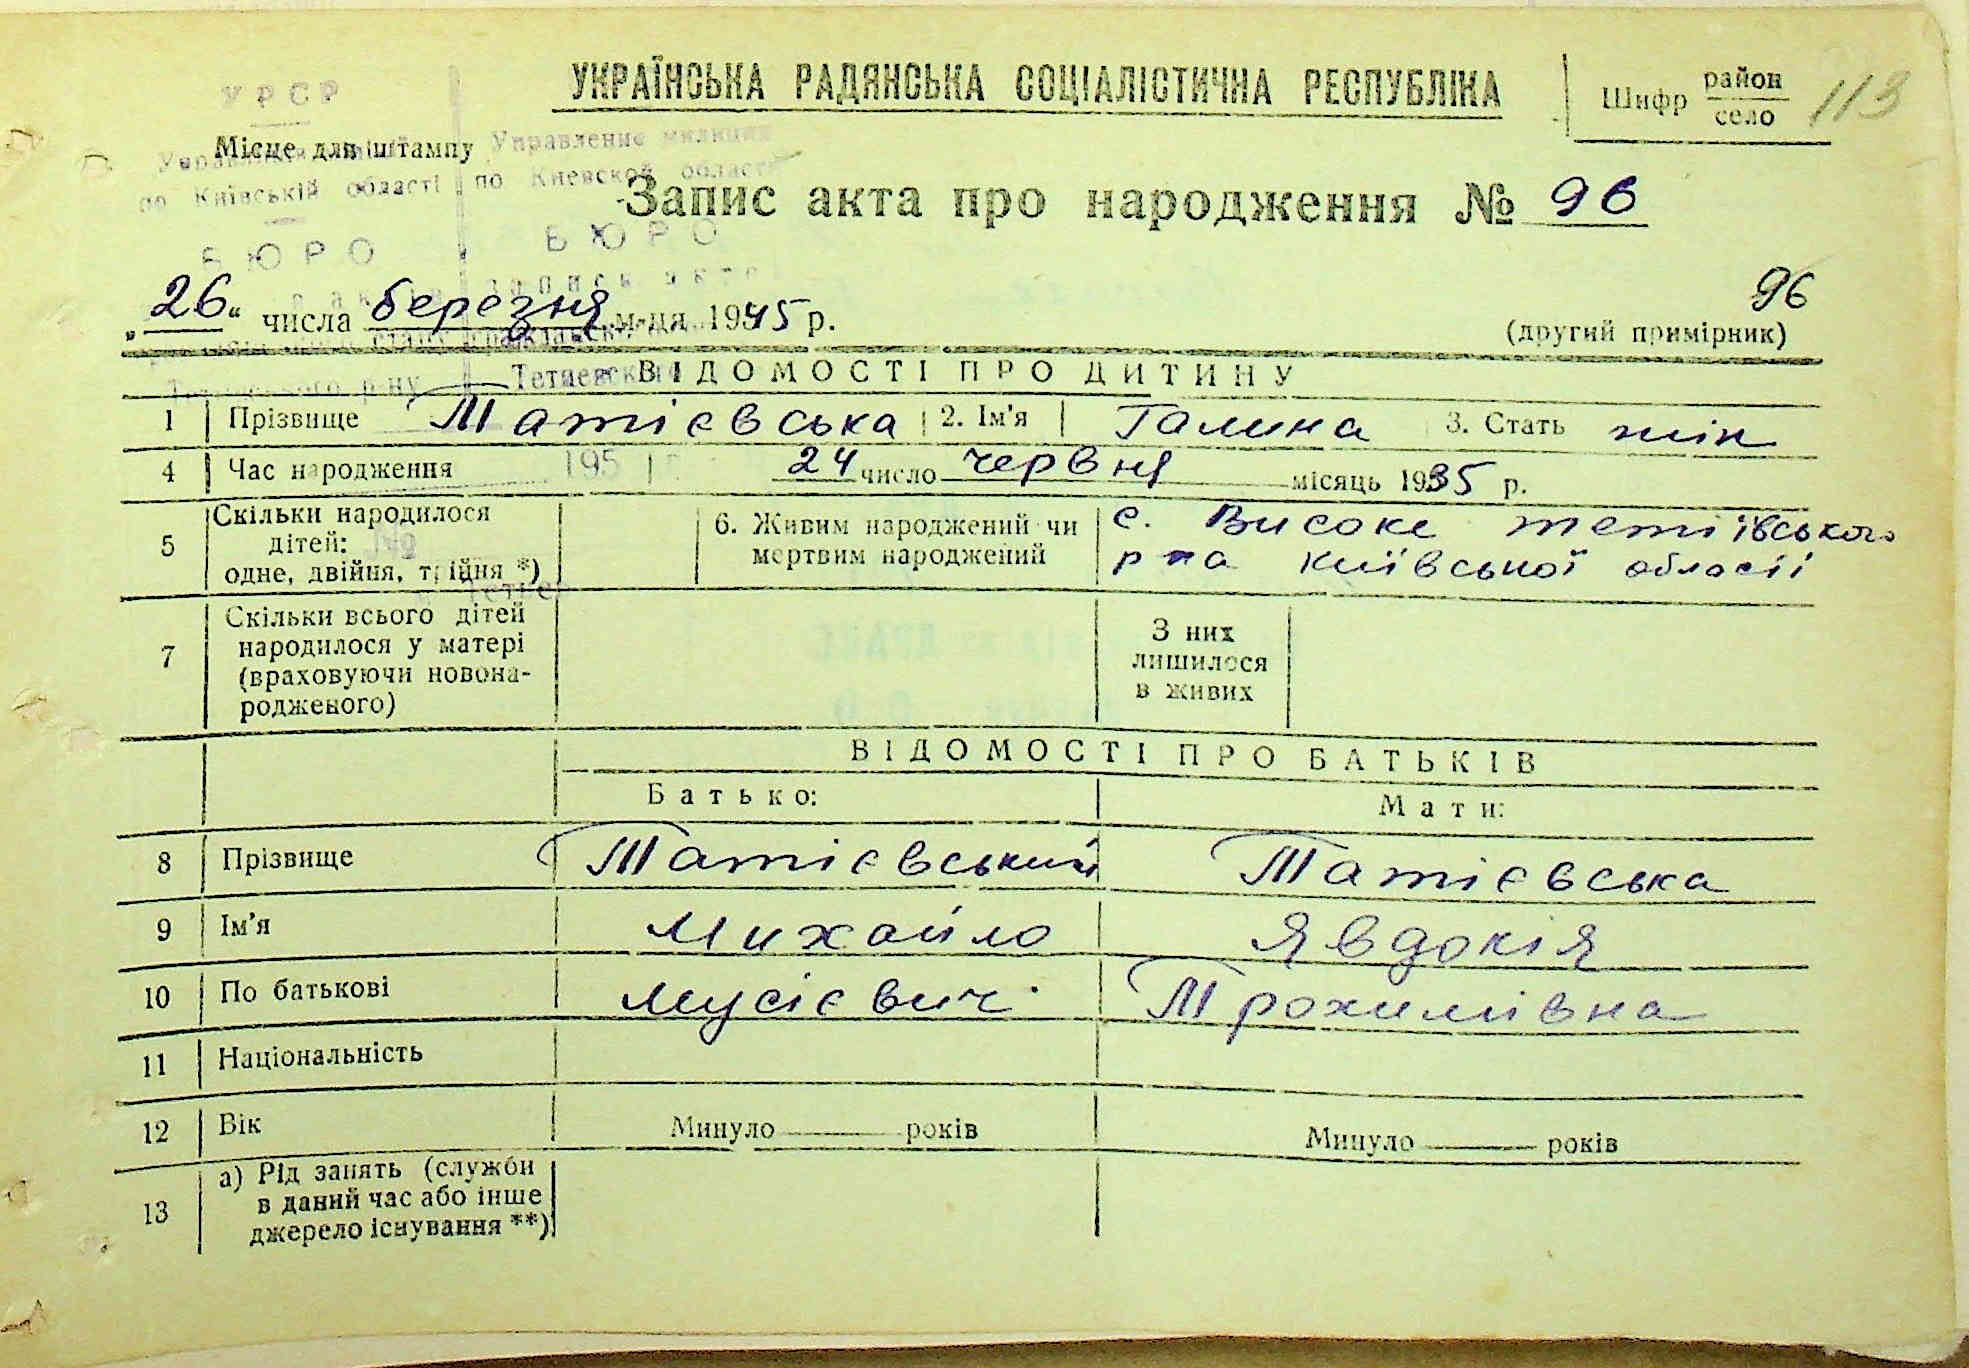 УКРАЇНСЬКА РАДЯНСЬКА СОЦІАЛІСТИЧНА РЕСПУБЛІКА
Шифр район
село
113
УРСР
Місце для штампу
Управление милиции
по Київській області по Киевской области
БЮРО БЮРО
Запис акта про народження № 96
записи акто
„26“ числа березня м-ця 1945 р.
96
(другий примірник)
ВІДОМОСТІ ПРО ДИТИНУ
1 Прізвище Татієвська 2. Ім'я Галина 3. Стать жін
4 Час народження 195 24 число червня місяць 1935 р.
5 Скільки народилося дітей: одне, двійня, трійня *) 6. Живим народжений чи мертвим народжений
с. Високе тетіївського
р-на київської області
7 Скільки всього дітей народилося у матері (враховуючи новонародженого) З них лишилося в живих
ВІДОМОСТІ ПРО БАТЬКІВ
Батько: Мати:
8 Прізвище Татієвський Татієвська
9 Ім'я Михайло Явдокія
10 По батькові Мусієвич Трохимівна
11 Національність
12 Вік Минуло років Минуло років
13 а) Рід занять (служби
в даний час або інше
джерело існування **)